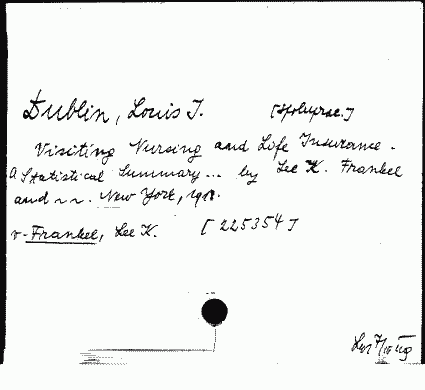 Dublin, Louis I. [Współprac.]
Visiting Nursing and Life Insurance.
A Statistical Summary... by Lee K. Frankel
and ~ ~. New York, 1918.
v. Frankel, Lee K. [225354]